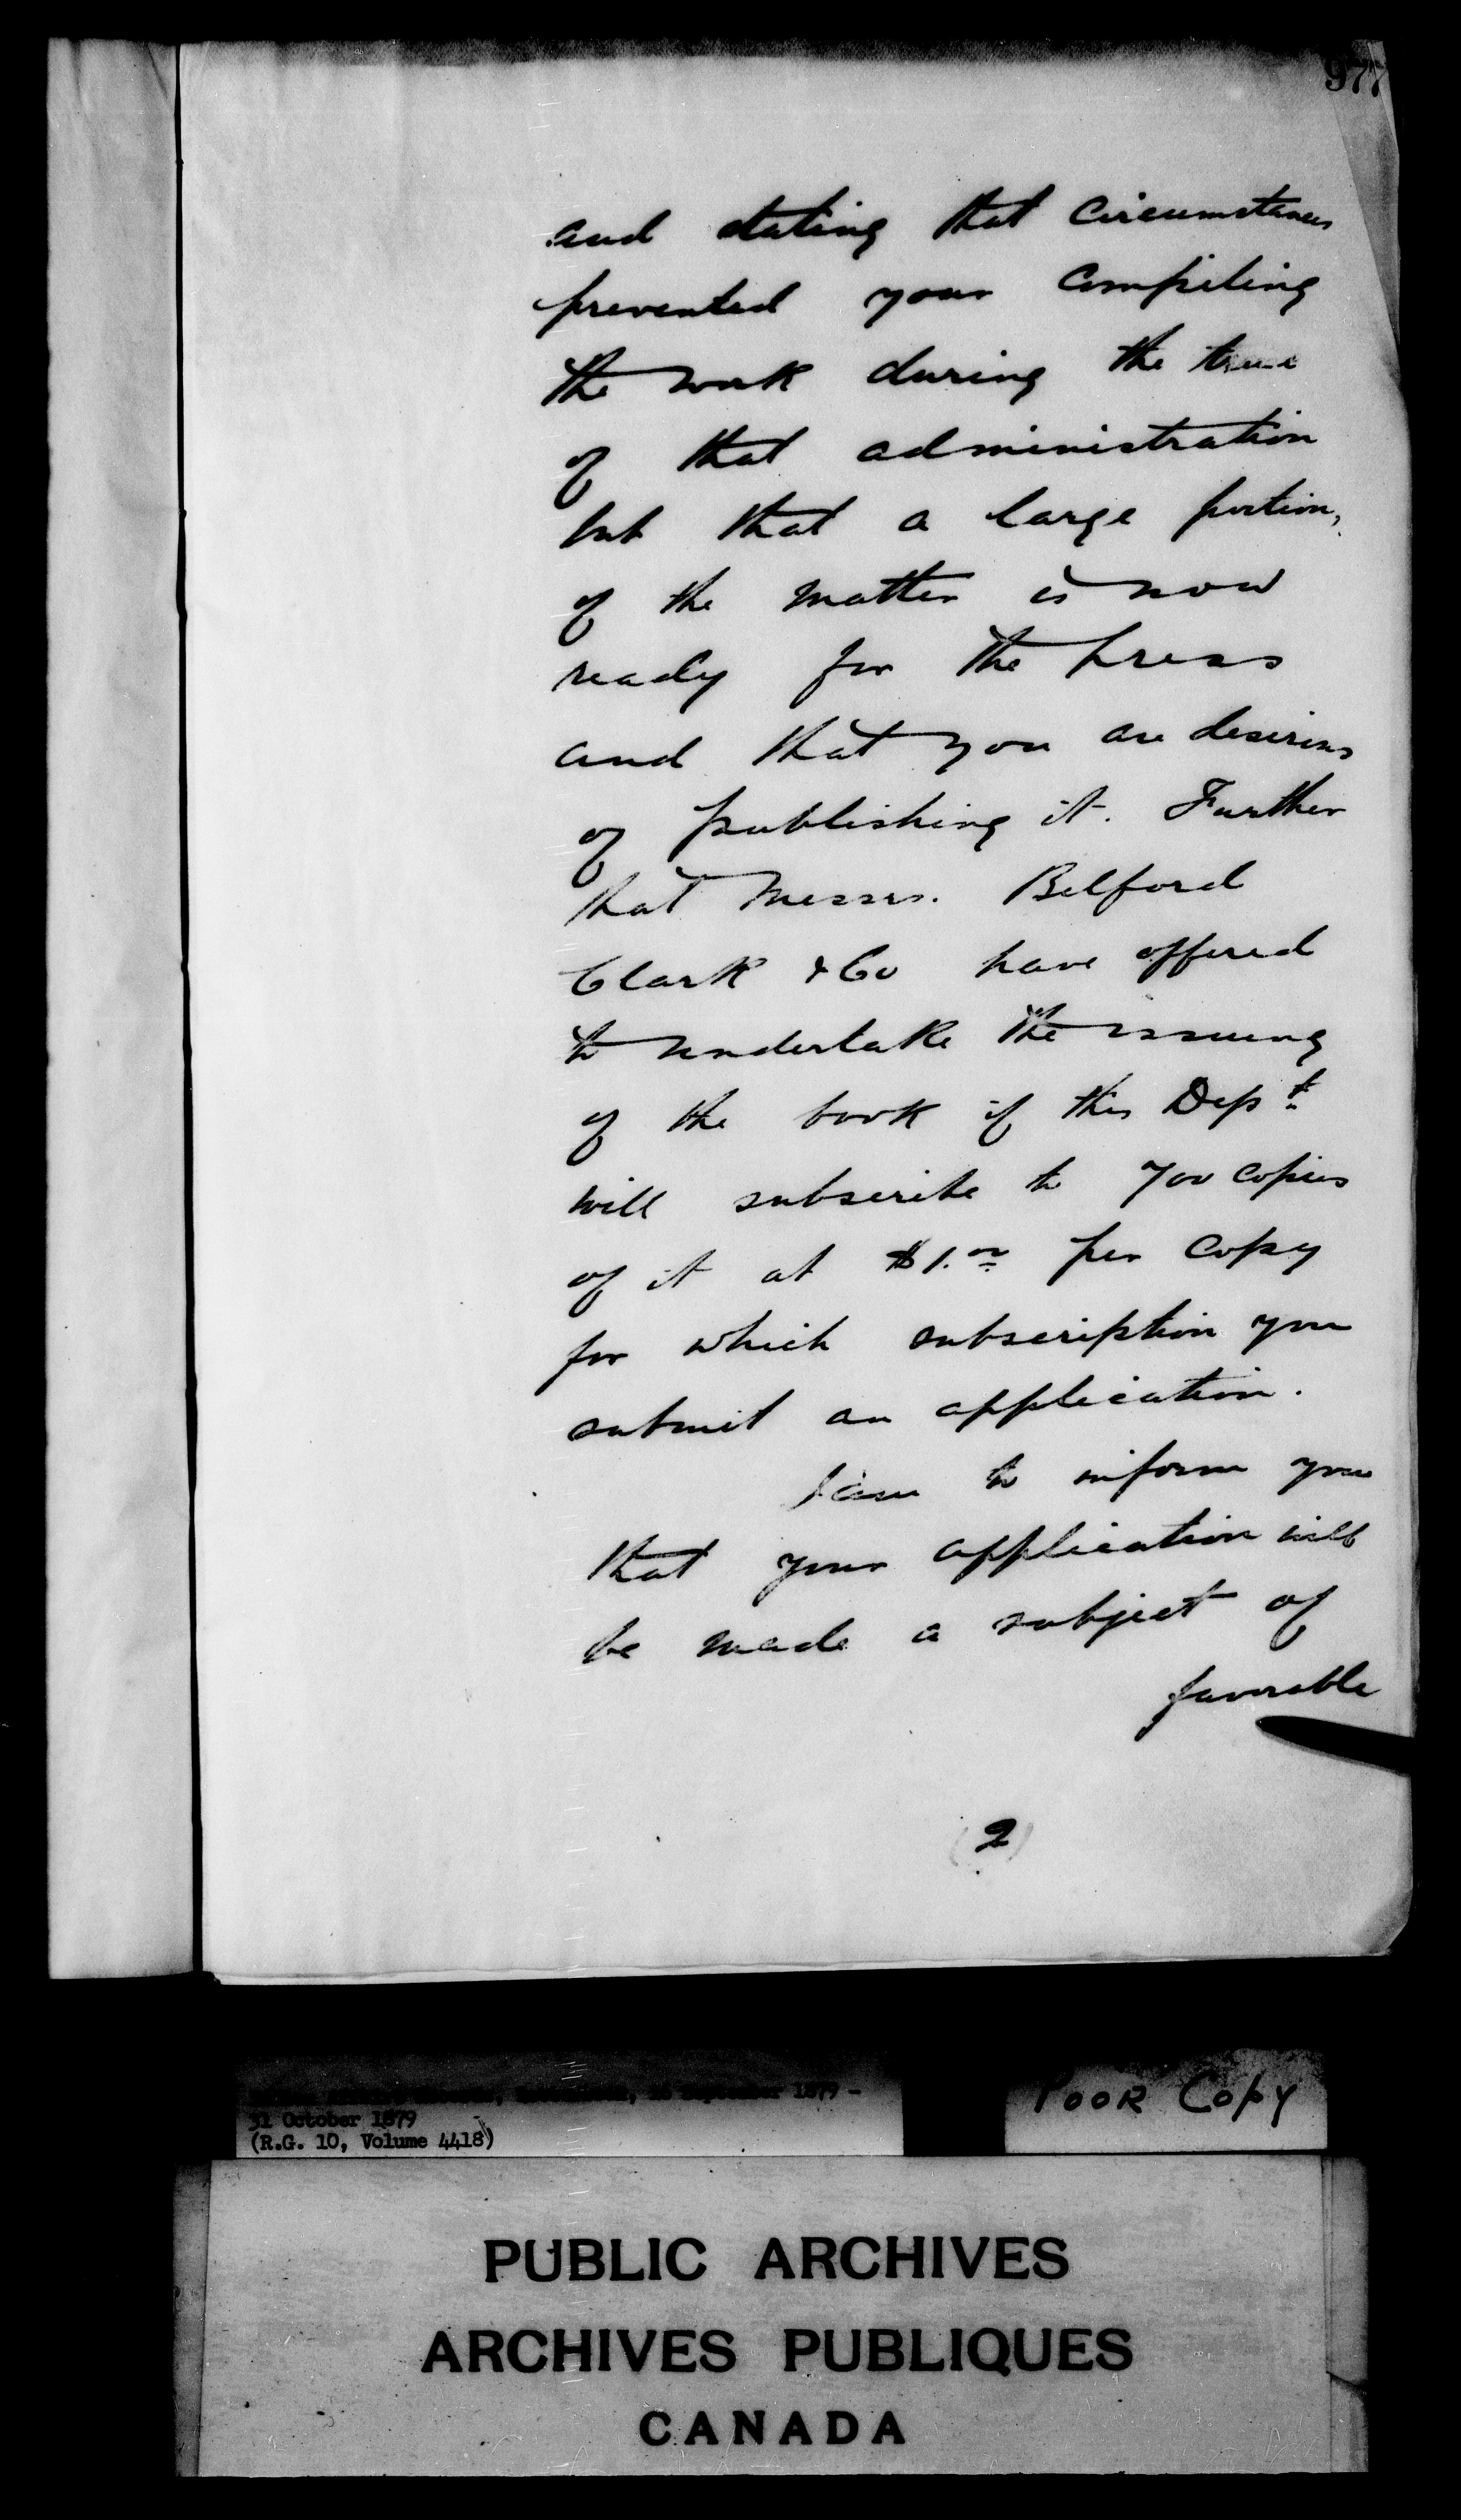 977
and stating that circumstances
prevented your compiling
the work during the time
of that administration
but that a large portion,
of the matter is now
ready for the press
and that you are desirous
of publishing it. Further
that Messrs. Belford
Clark & Co have offered
to undertake the issuing
of the book if this Dept
will subscribe to 700 copies
of it at $1.00 per copy
for which subscription you
submit an application.
I am to inform you
that your application will
be made a subject of
favorable
(2)
September 1879 -
31 October 1879
(R.G. 10, Volume 4418)
POOR COPY
PUBLIC ARCHIVES
ARCHIVES PUBLIQUES
CANADA